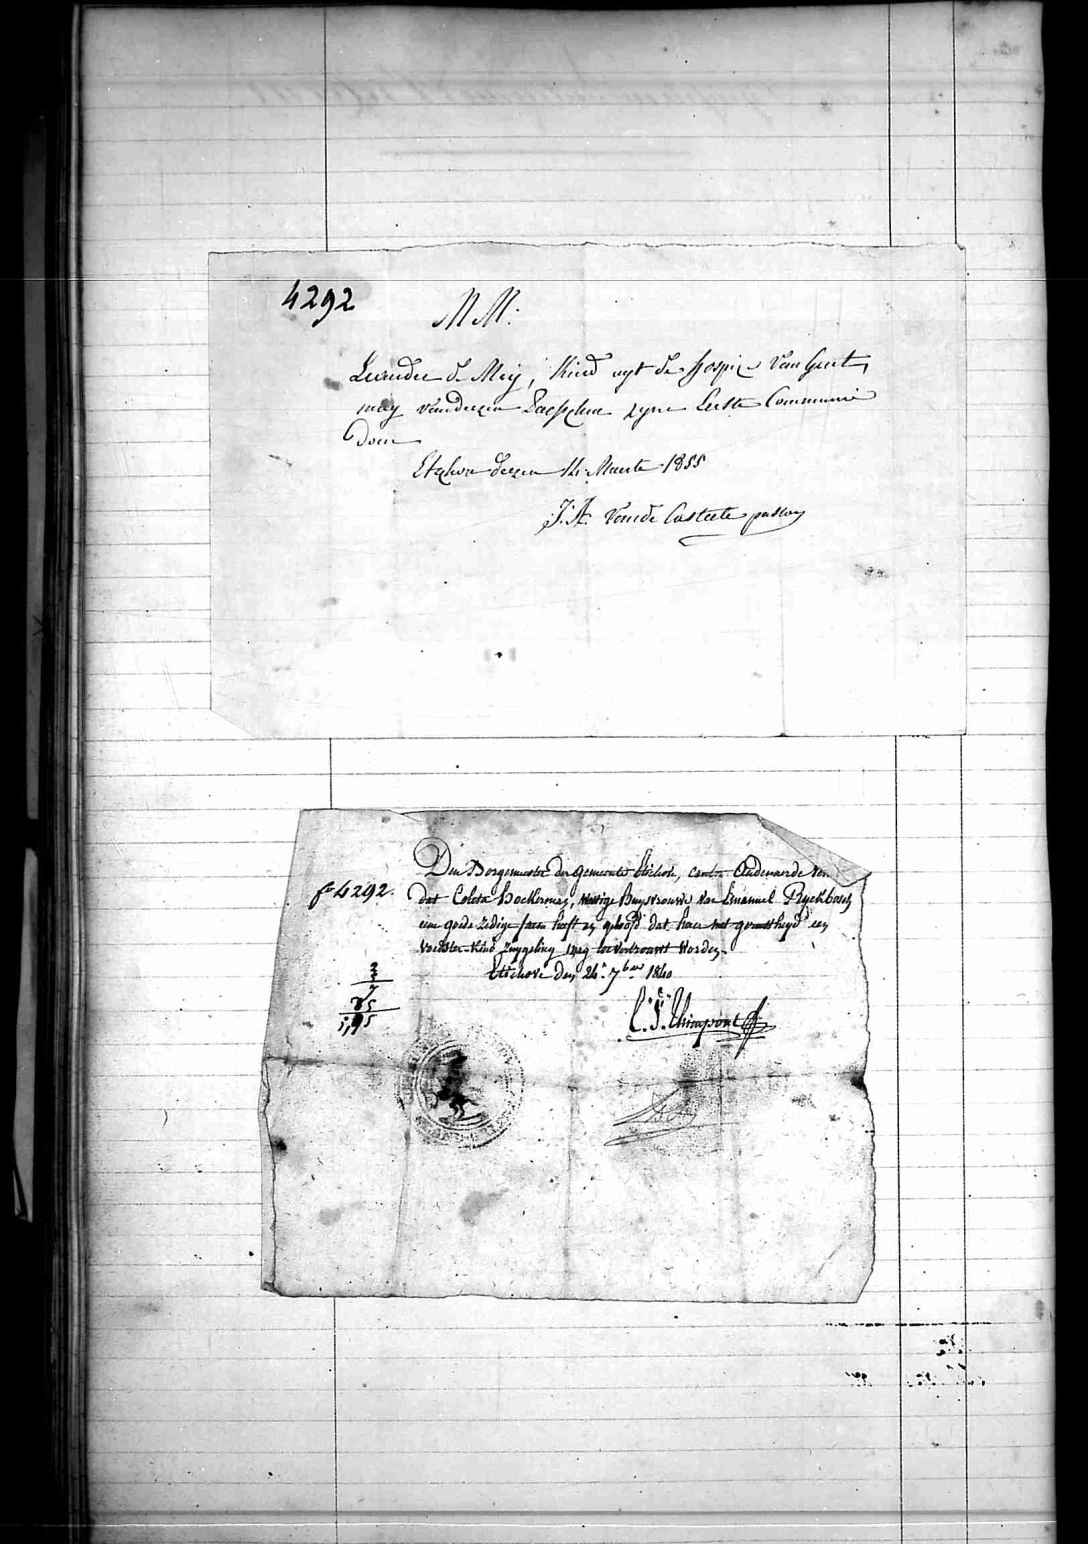 4292
M M:
Leander de Meij, Kind uyt de hospice van Gent,
mag van dezen Paeschen zyne Eerste Communie
doen
Etichove dezen 14 Maerte 1855
J. A. Vande Casteele pastor
Den Borgemeester der gemeente Etichove, canton Audenaerde
f° 4292.
dat Coleta hoekerman, huysvrouwe van Emanuel Ryckbosch
eene goede zedige faem heeft en geloofd dat haer met gerustheyd een
voedster-Kind zuygeling mag toevertrouwt worden.
Etichove den 24e 7ber 1840
3
7
85
5,95
C. J. Thienpont